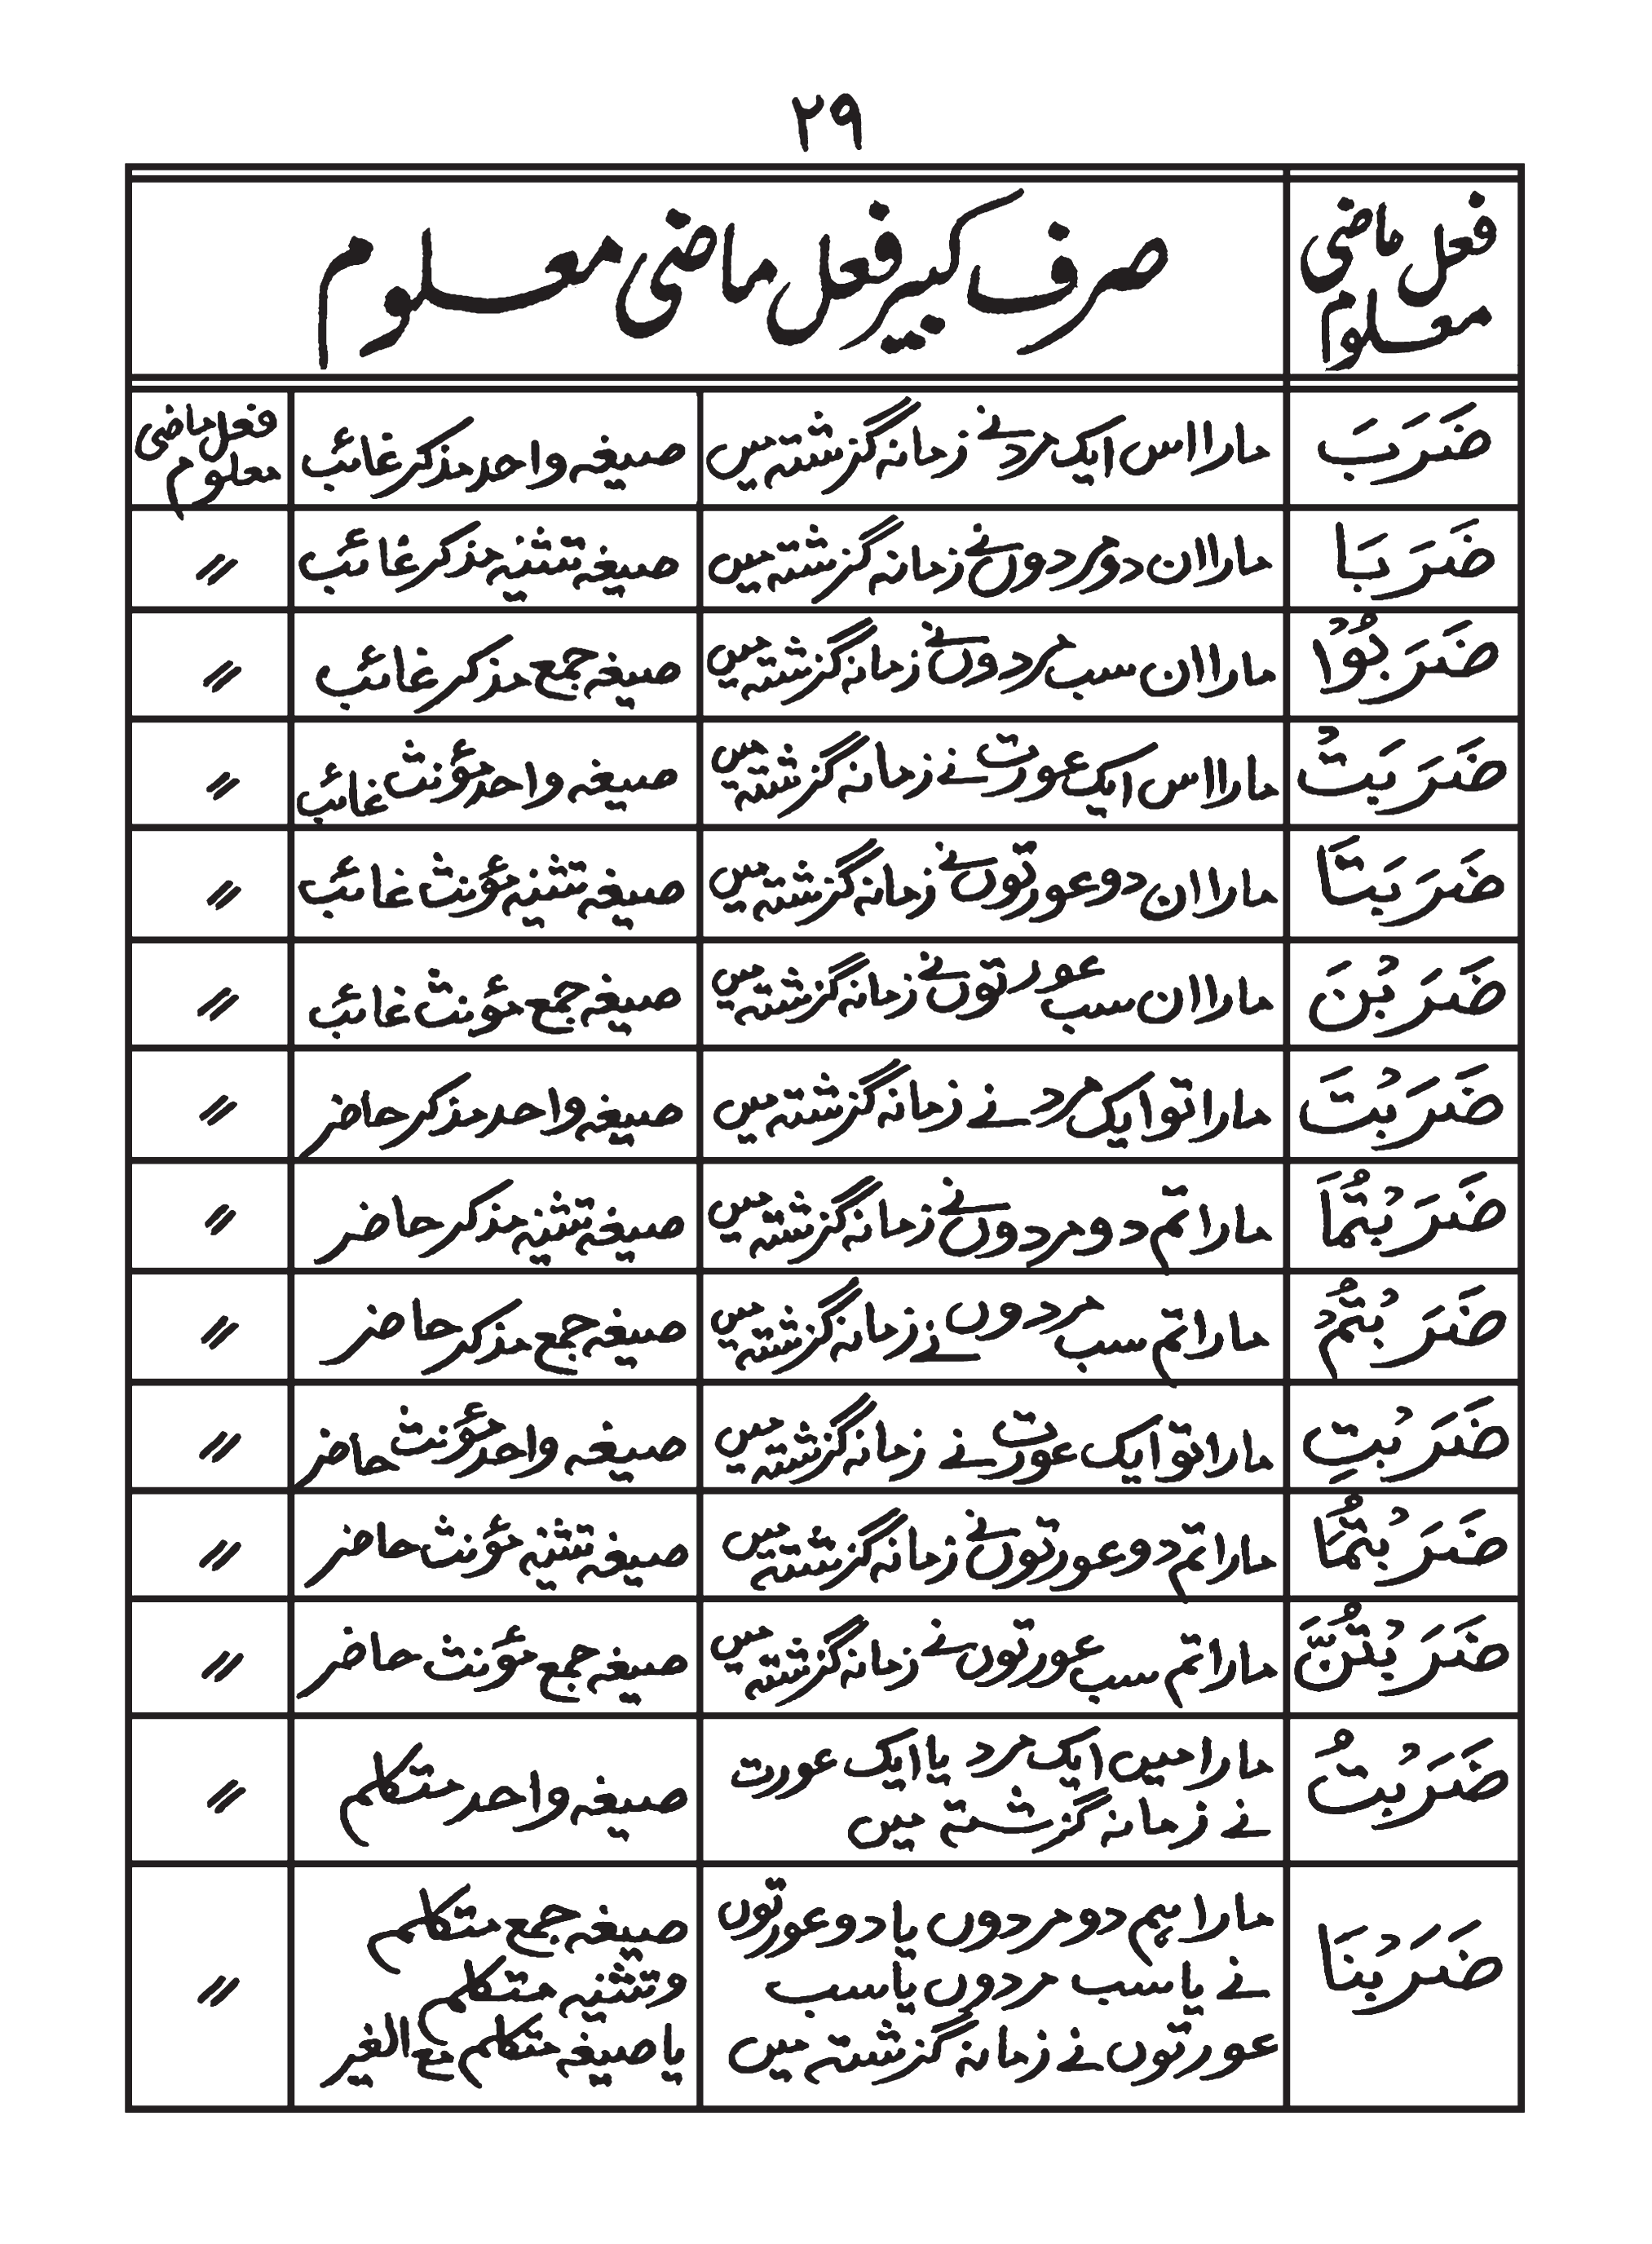 ۲۹
فعل ماضی
معلوم
صرف کبیر فعل ماضی معلوم
ضَرَبَ مارا اس ایک مرد نے زمانہ گزشتہ میں صیغہ واحد مذکر غائب فعل ماضی معلوم
ضَرَبَا مارا ان دو مردوں نے زمانہ گزشتہ میں صیغہ تثنیہ مذکر غائب 〃
ضَرَبُوْا مارا ان سب مردوں نے زمانہ گزشتہ میں صیغہ جمع مذکر غائب 〃
ضَرَبَتْ مارا اس ایک عورت نے زمانہ گزشتہ میں صیغہ واحد مؤنث غائب 〃
ضَرَبَتَا مارا ان دو عورتوں نے زمانہ گزشتہ میں صیغہ تثنیہ مؤنث غائب 〃
ضَرَبْنَ مارا ان سب عورتوں نے زمانہ گزشتہ میں صیغہ جمع مؤنث غائب 〃
ضَرَبْتَ مارا تو ایک مرد نے زمانہ گزشتہ میں صیغہ واحد مذکر حاضر 〃
ضَرَبْتُمَا مارا تم دو مردوں نے زمانہ گزشتہ میں صیغہ تثنیہ مذکر حاضر 〃
ضَرَبْتُمْ مارا تم سب مردوں نے زمانہ گزشتہ میں صیغہ جمع مذکر حاضر 〃
ضَرَبْتِ مارا تو ایک عورت نے زمانہ گزشتہ میں صیغہ واحد مؤنث حاضر 〃
ضَرَبْتُمَا مارا تم دو عورتوں نے زمانہ گزشتہ میں صیغہ تثنیہ مؤنث حاضر 〃
ضَرَبْتُنَّ مارا تم سب عورتوں نے زمانہ گزشتہ میں صیغہ جمع مؤنث حاضر 〃
ضَرَبْتُ مارا میں ایک مرد یا ایک عورت
نے زمانہ گزشتہ میں صیغہ واحد متکلم 〃
ضَرَبْنَا مارا ہم دو مردوں یا دو عورتوں
نے یا سب مردوں یا سب
عورتوں نے زمانہ گزشتہ میں
صیغہ جمع متکلم
وتثنیہ متکلم
یا صیغہ متکلم مع الغیر 〃